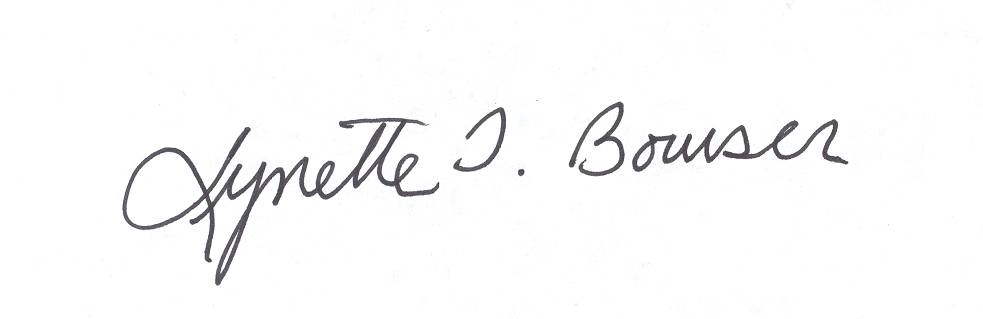 Lynette T. Bowser